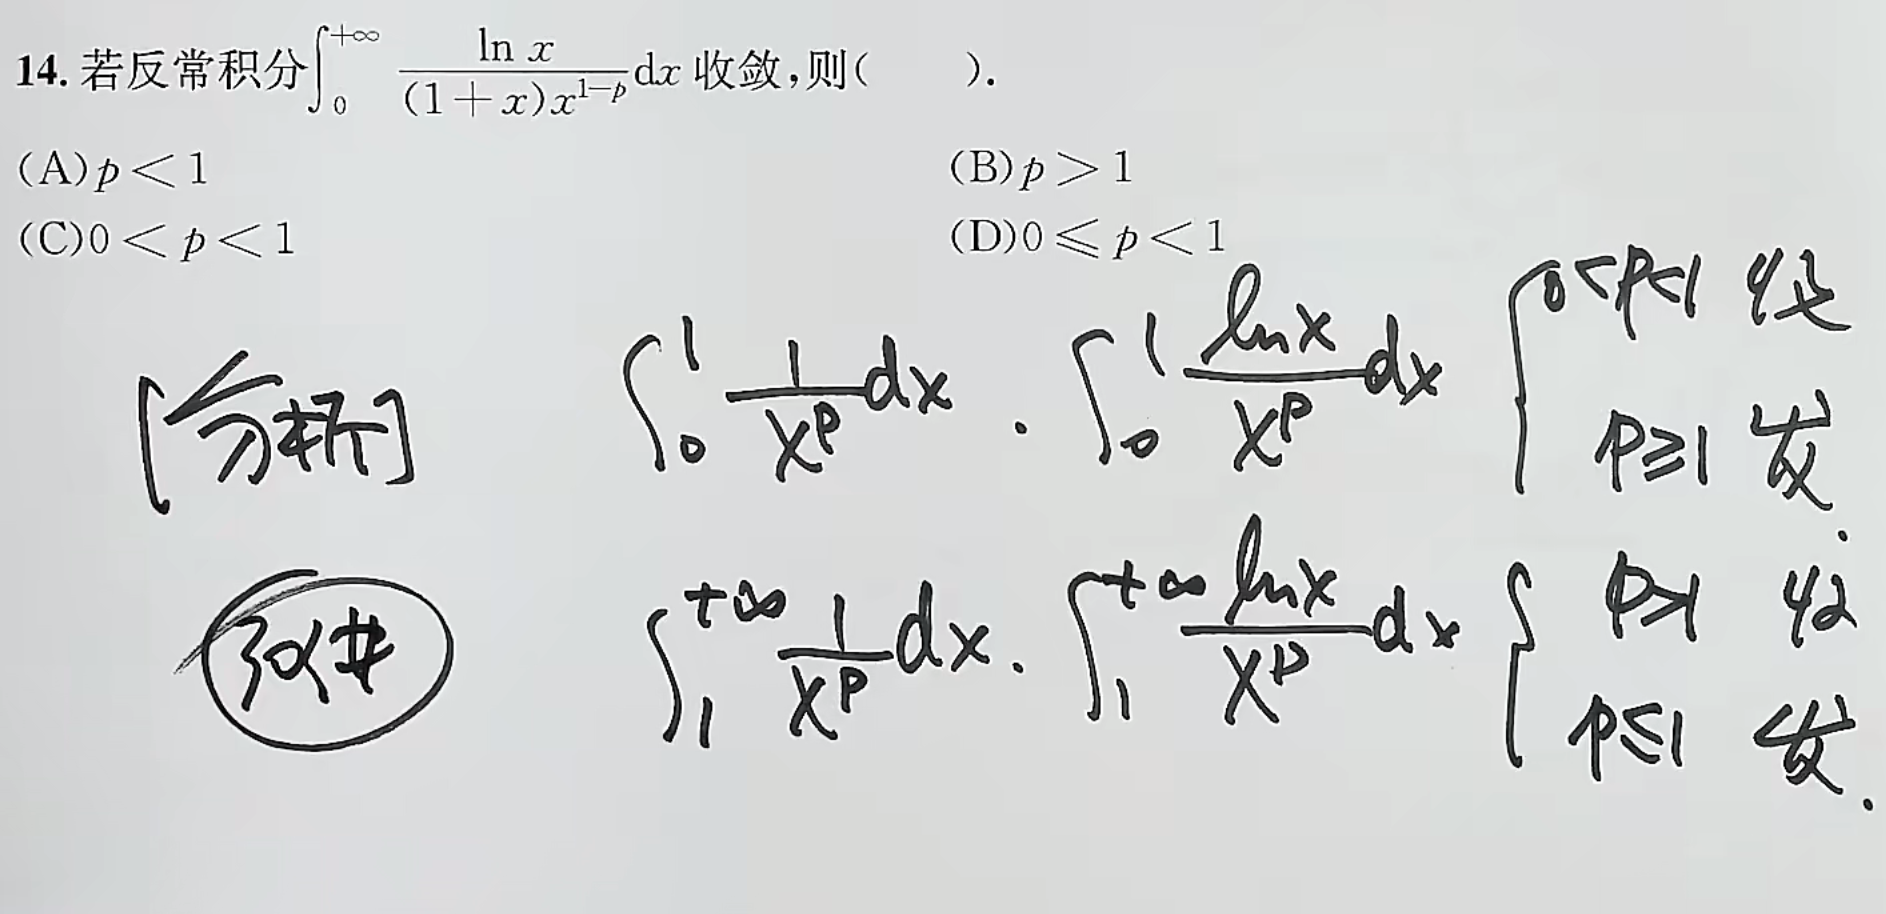 14. 若反常积分∫₀^{+∞} \frac{\ln x}{(1+x)x^{1-p}}dx 收敛,则(　　).
(A)p<1　　(B)p>1
(C)0<p<1　　(D)0≤p<1
[分析] ∫₀¹ \frac{1}{x^p}dx . ∫₀¹ \frac{\ln x}{x^p}dx { 0<p<1 收
p≥1 发.
∫₁^{+∞} \frac{1}{x^p}dx . ∫₁^{+∞} \frac{\ln x}{x^p}dx { p>1 收
p≤1 发.